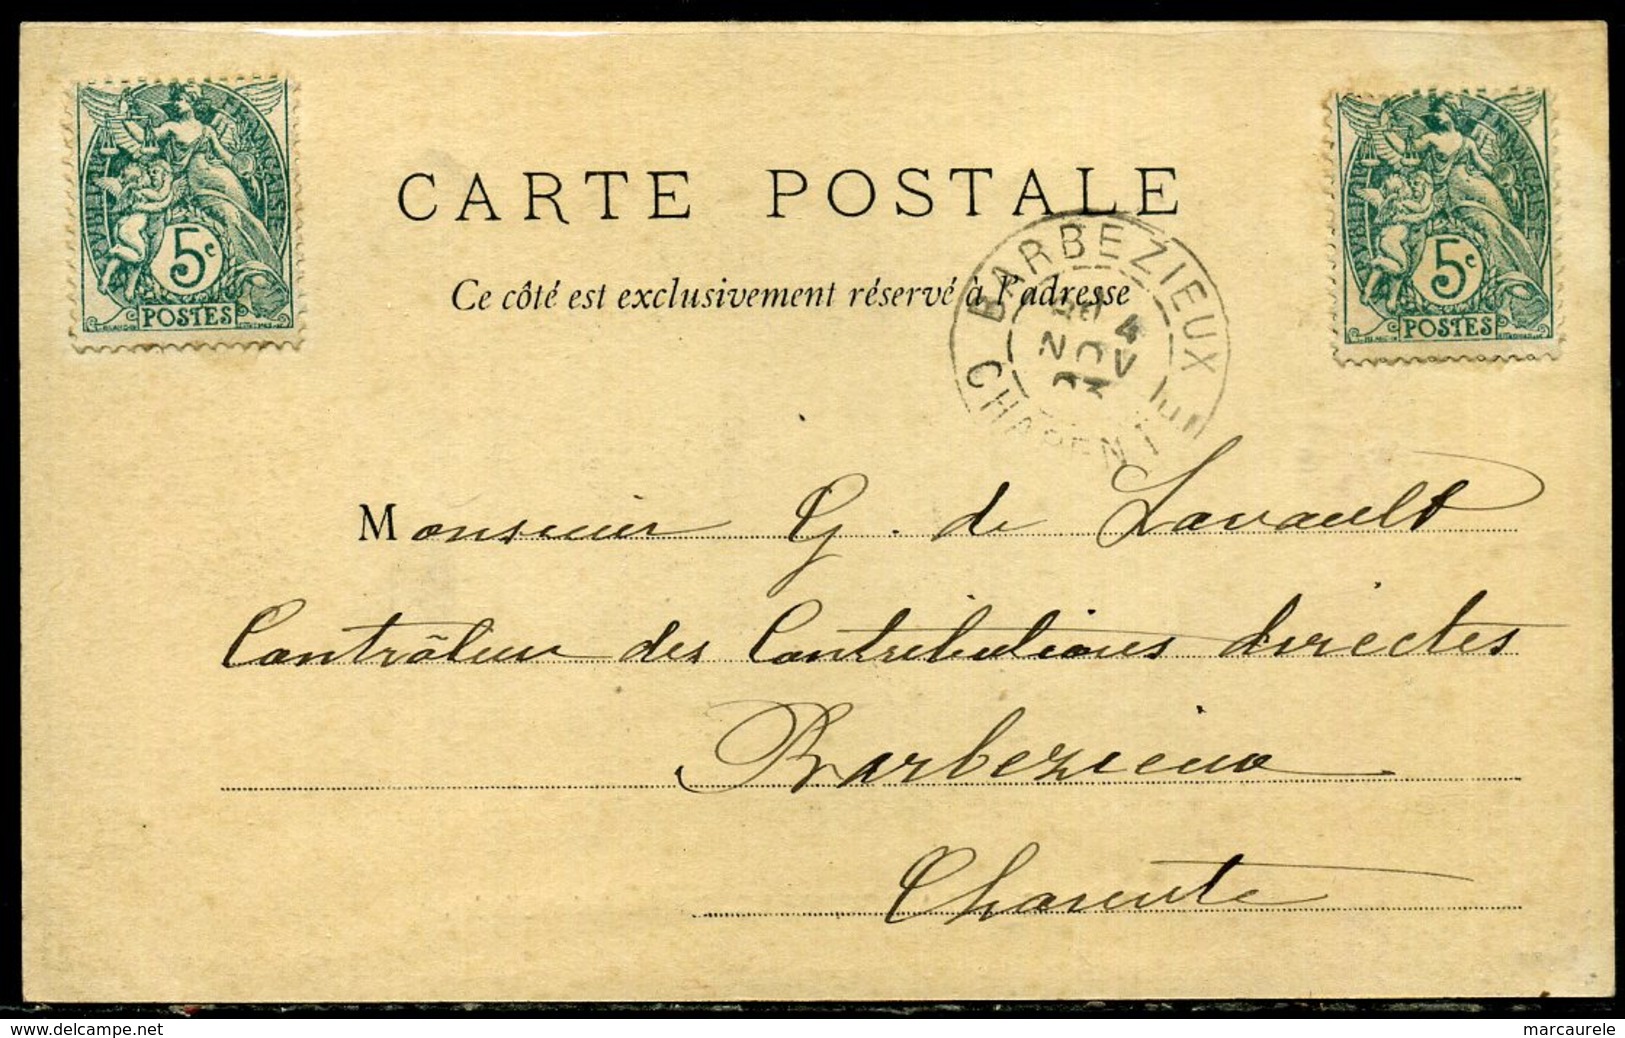 RÉPUBLIQUE FRANÇAISE
5c
POSTES
RÉPUBLIQUE FRANÇAISE
5c
POSTES
CARTE POSTALE
Ce côté est exclusivement réservé à l'adresse
BARBEZIEUX
CHARENTE
Monsieur G. de Lavault
Contrôleur des Contributions directes
Barbezieux
Charente
www.delcampe.net
marcaurele